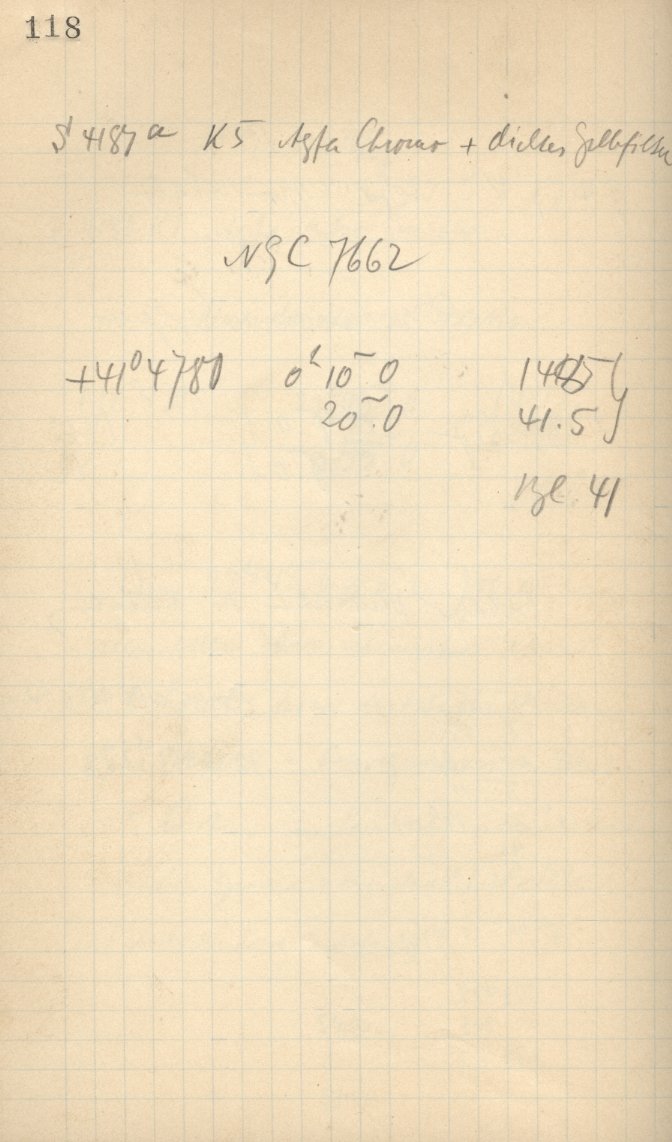 118
S 4187a K5 Agfa Chromo + dickes Gelbfilter
NGC 7662
+41° 4780 0h 10m.0
20m.0 41.5
Bl. 41